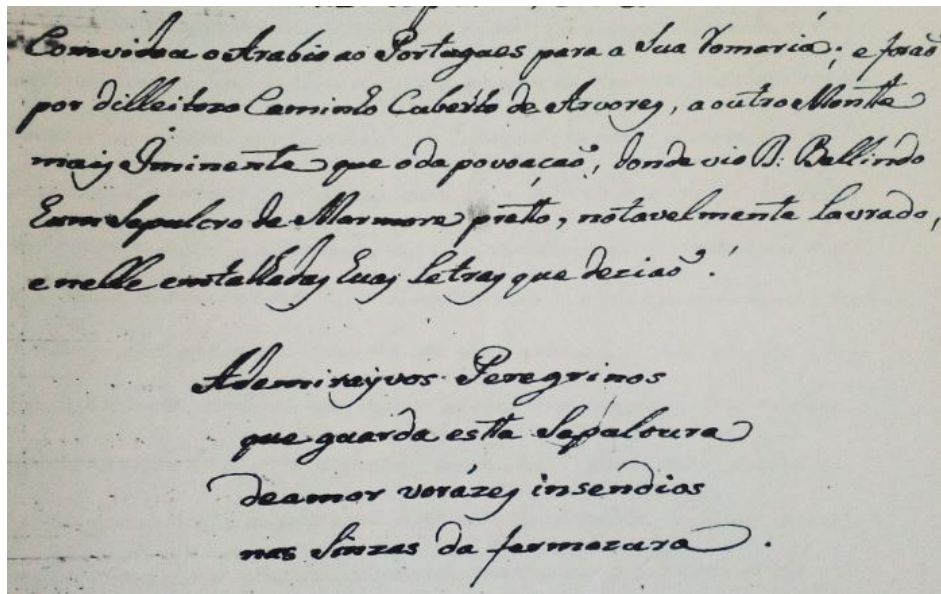 Comvidou o Arabio ao Portugues para a Sua Romaria; e forão
por dilleitozo Caminho Cuberto de Arvores, a outro Montte
mais Iminente que o da povoação, donde vio D. Bellindo
hum Sepulcro de Marmore pretto, notavelmente lavrado,
e nelle enttalhadas huas Letras que dezião:
Ademirayvos Peregrinos
que guarda estta Sepultura
de amor vorázes insendios
nas Sinzas da fermozura.